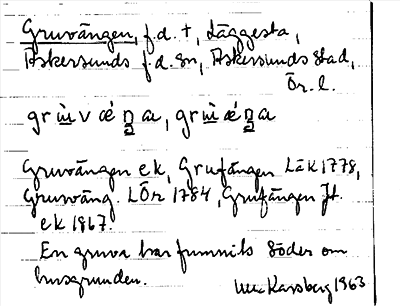 Gruvängen, f.d. t, Läggesta,
Askersunds f.d. sn, Askersunds stad,
Ör. l.
Gruvängen ek, Grufängen Läk 1778,
Gruwäng. LÖr 1784, Grufängen Jt.
ek 1867.
En gruva har funnits söder om
husgrunden.
Karsberg 1963